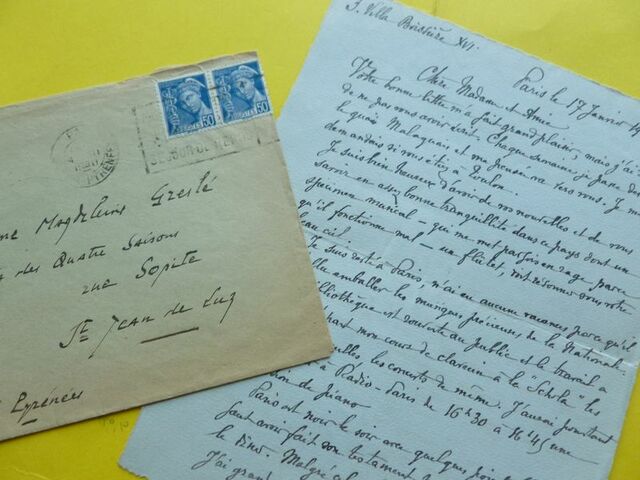 50
50
me Magdeleine Greslé
des Quatre Saisons
rue Sopite
St Jean de Luz
Pyrénées
3. Villa Boissière XVI.
Paris le 17 Janvier
Chère Madame et Amie
Votre bonne lettre m'a fait grand plaisir, mais j'ai
de ne pas vous avoir écrit. Chaque semaine, je passe
quai Malaquais et ma pensée va vers vous. Je me
demandais si vous étiez à Toulon.
Je suis bien heureux d'avoir de vos nouvelles et de vous
savoir en assez bonne tranquillité dans ce pays dont un
spécimen musical - qui me met parfois en rage parce
qu'il fonctionne mal - un flûtet, doit résonner sous votre
beau ciel.
Je suis resté à Paris, n'ai eu aucunes vacances parce qu'il
fallu emballer les musiques précieuses de la Nationale
bibliothèque est rouverte au public et le travail a
part mon cours de clavecin à la Schola "les
les concerts de même. J'aurai pourtant
à Radio-Paris de 16h30 à 16h45 une
de piano
Paris est noir le soir avec quelques
faut avoir fait son testament
le dîner. Malgré
J'ai grand